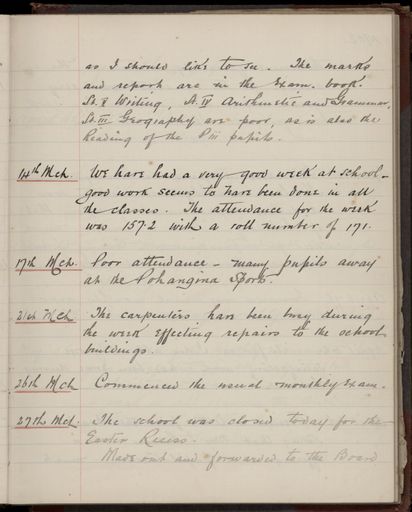 as I should like to see. The marks
and report are in the Exam. book.
St. V Writing, St. IV Arithmetic and Grammar,
St. III Geography are poor, as is also the
Reading of the P III pupils.
14th Mch. We have had a very good week at school –
good work seems to have been done in all
the classes. The attendance for the week
was 157.2 with a roll number of 171.
17th Mch. Poor attendance – many pupils away
at the Pohangina Sports.
21st Mch The carpenters have been busy during
the week effecting repairs to the school
buildings.
26th Mch Commenced the usual monthly Exam.
27th Mch. The school was closed today for the
Easter Recess.
Made out and forwarded to the Board